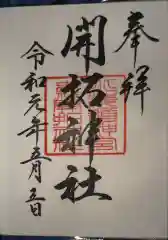 奉拝
開拓神社
令和元年五月五日